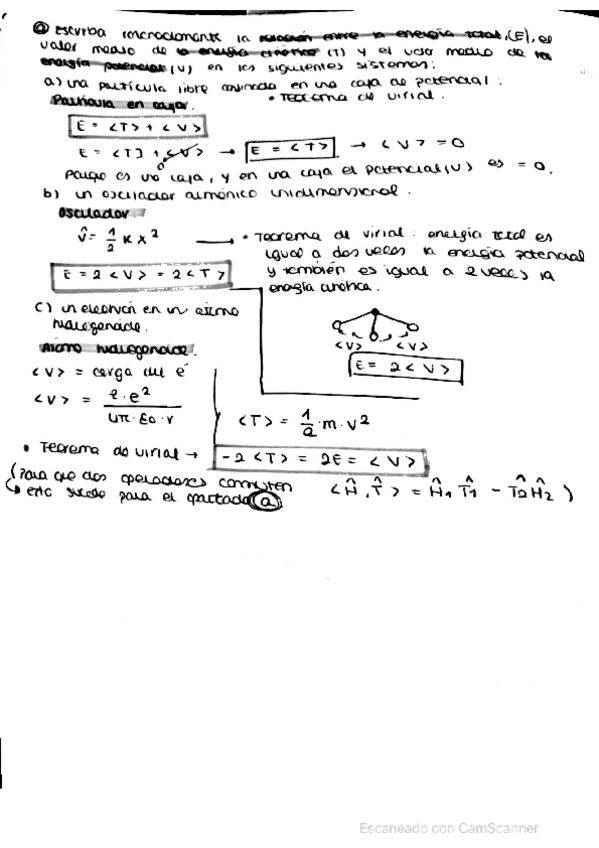 Escriba razonadamente la relación entre la energía total (E), el
valor medio de la energía cinética (T) y el valor medio de la
energía potencial (V) en los siguientes sistemas:
a) una partícula libre confinada en una caja de potencial:
Partícula en caja.
• Teorema de virial.
E = <T> + <V>
E = <T> + <V> → E = <T> → <V> = 0
0
Porque es una caja, y en una caja el potencial (V) es = 0.
b) un oscilador armónico unidimensional.
Oscilador
V̂ = 1/2 K x²
→ • Teorema de virial: energía total es
igual a dos veces la energía potencial
y también es igual a 2 veces la
energía cinética.
E = 2 <V> = 2 <T>
c) un electrón en un átomo
hidrogenoide.
<V> <V>
E = 2 <V>
Átomo hidrogenoide.
<V> = carga del e⁻
<V> = e² / 4π·ε₀·r
<T> = 1/2 · m · v²
• Teorema de virial → -2 <T> = 2E = <V>
(Para que dos operadores conmuten
<Ĥ, T̂> = Ĥ₁ T̂₁ - T̂₂ Ĥ₂ )
↳ esto sucede para el apartado a
Escaneado con CamScanner